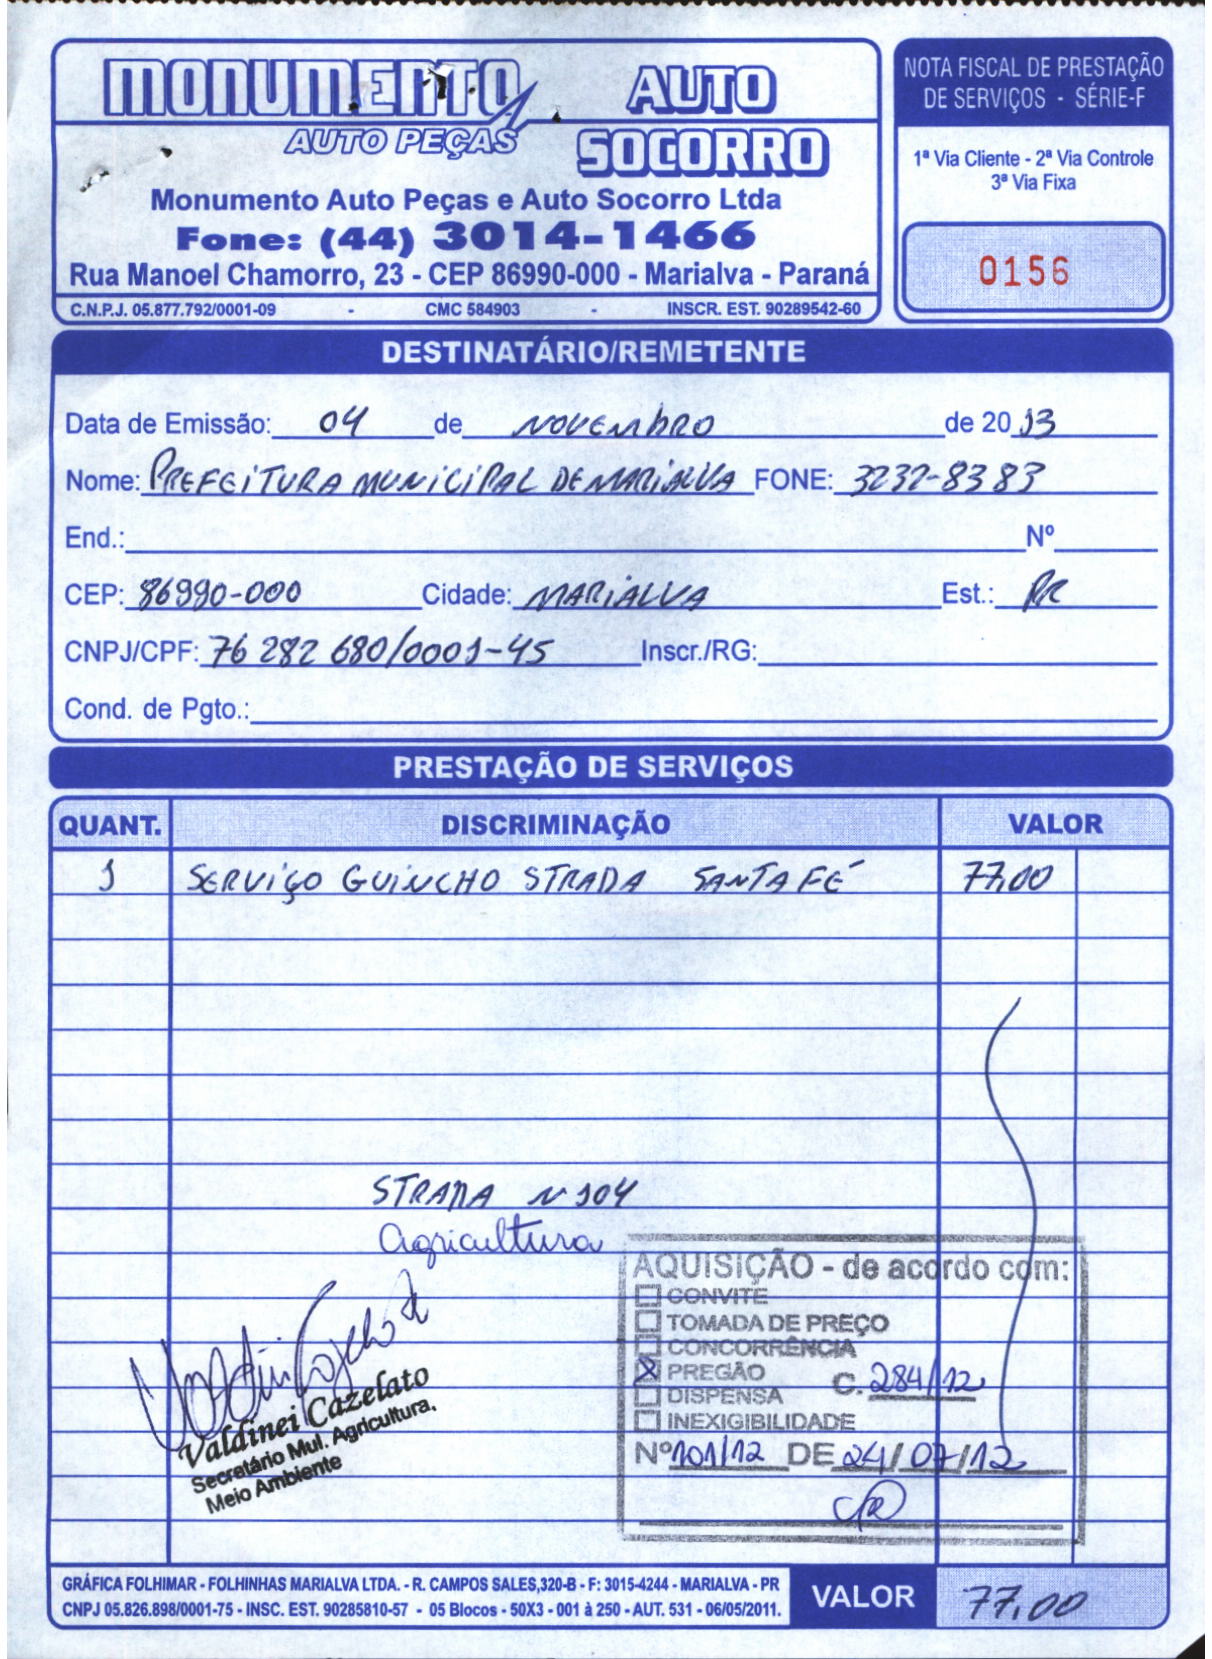 MONUMENTO
AUTO PEÇAS
AUTO
SOCORRO
Monumento Auto Peças e Auto Socorro Ltda
Fone: (44) 3014-1466
Rua Manoel Chamorro, 23 - CEP 86990-000 - Marialva - Paraná
C.N.P.J. 05.877.792/0001-09 - CMC 584903 - INSCR. EST. 90289542-60
NOTA FISCAL DE PRESTAÇÃO
DE SERVIÇOS - SÉRIE-F
1ª Via Cliente - 2ª Via Controle
3ª Via Fixa
0156
DESTINATÁRIO/REMETENTE
Data de Emissão: 04 de NOVEMBRO de 2013
Nome: PREFEITURA MUNICIPAL DE MARIALVA FONE: 3232-8383
End.: Nº
CEP: 86990-000 Cidade: MARIALVA Est.: PR
CNPJ/CPF: 76 282 680/0001-45 Inscr./RG:
Cond. de Pgto.:
PRESTAÇÃO DE SERVIÇOS
QUANT. DISCRIMINAÇÃO VALOR
1 SERVIÇO GUINCHO STRADA SANTA FÉ 77,00
STRADA N 104
Agricultura
Valdinei Cazelato
Secretário Mul. Agricultura,
Meio Ambiente
AQUISIÇÃO - de acordo com:
CONVITE
TOMADA DE PREÇO
CONCORRÊNCIA
X PREGÃO C. 284/12
DISPENSA
INEXIGIBILIDADE
Nº 101/12 DE 24/07/12
GRÁFICA FOLHIMAR - FOLHINHAS MARIALVA LTDA. - R. CAMPOS SALES,320-B - F: 3015-4244 - MARIALVA - PR
CNPJ 05.826.898/0001-75 - INSC. EST. 90285810-57 - 05 Blocos - 50X3 - 001 à 250 - AUT. 531 - 06/05/2011.
VALOR 77,00